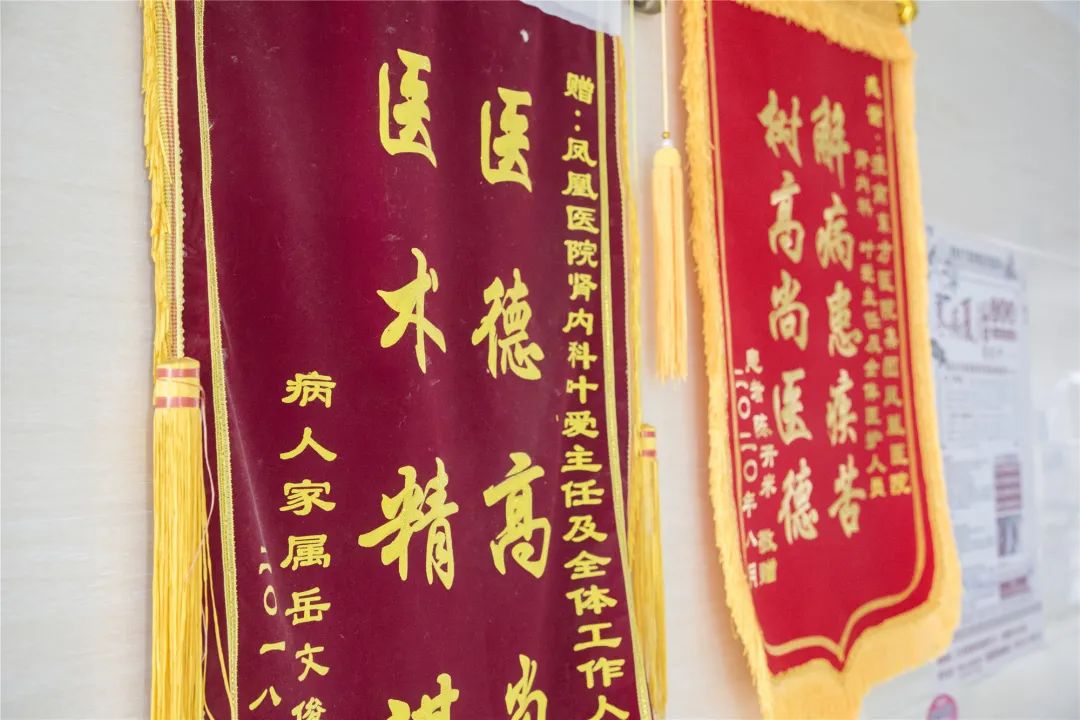 赠:凤凰医院肾内科叶爱主任及全体工作人
医德高尚
医术精湛
病人家属岳文俊
二〇一八
感谢:淮南东方医院集团凤凰医院
肾内科 叶爱主任及全体医护人员
解病患疾苦
树高尚医德
患者陈开米 敬赠
二〇二〇年八月